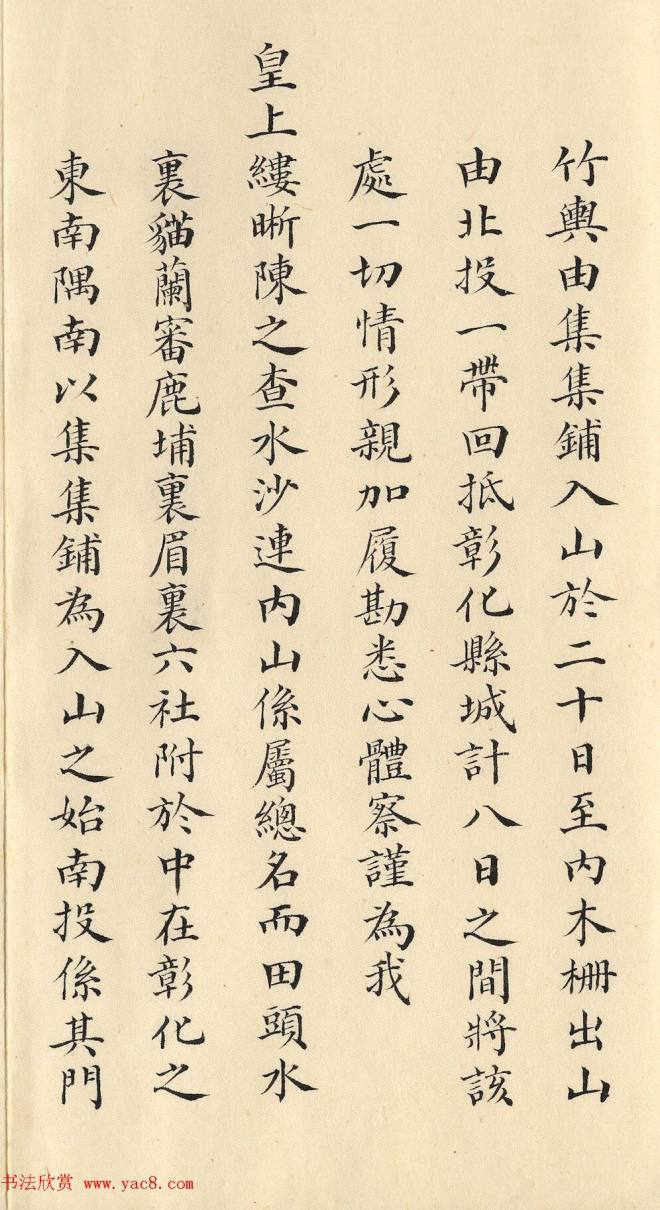 竹輿由集集鋪入山於二十日至内木柵出山
由北投一帶回抵彰化縣城計八日之間將該
處一切情形親加履勘悉心體察謹為我
皇上縷晰陳之查水沙連内山係屬總名而田頭水
裏貓蘭審鹿埔裏眉裏六社附於中在彰化之
東南隅南以集集鋪為入山之始南投係其門
书法欣赏 www.yac8.com